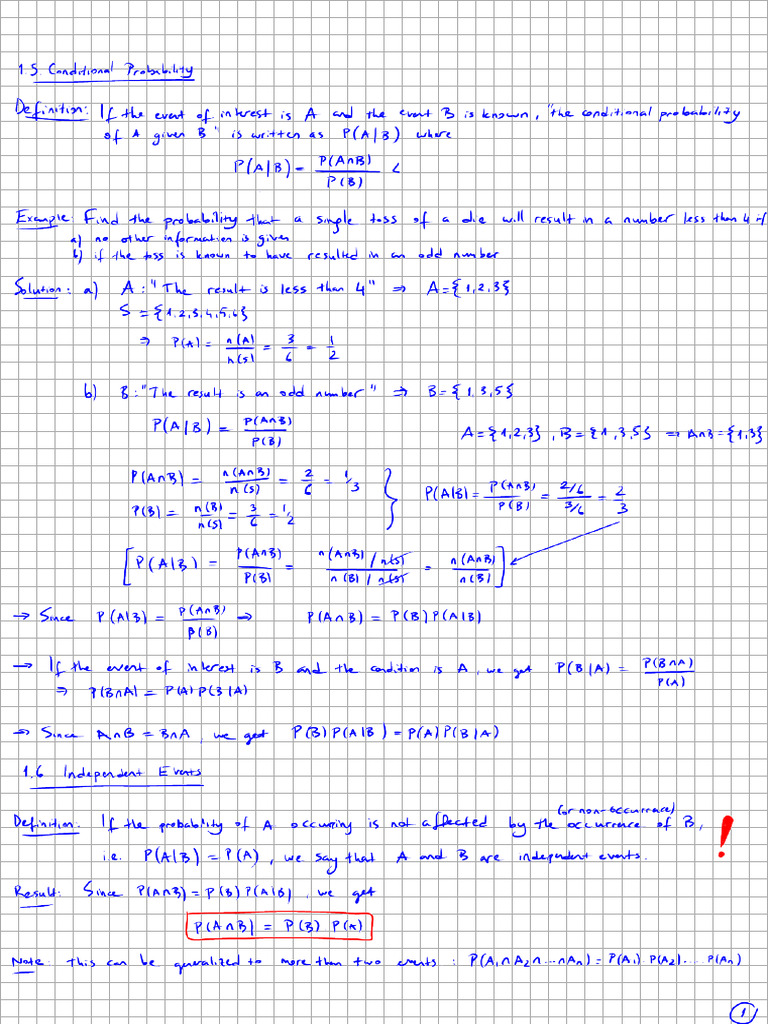 1.5. Conditional Probability
Definition: If the event of interest is A and the event B is known, "the conditional probability
of A given B" is written as P(A|B) where
P(A|B) = P(A∩B) / P(B)
Example: Find the probability that a single toss of a die will result in a number less than 4 if
a) no other information is given
b) if the toss is known to have resulted in an odd number
Solution: a) A: "The result is less than 4" ⇒ A={1,2,3}
S={1,2,3,4,5,6}
⇒ P(A) = n(A)/n(S) = 3/6 = 1/2
b) B: "The result is an odd number" ⇒ B={1,3,5}
P(A|B) = P(A∩B)/P(B)
A={1,2,3}, B={1,3,5} ⇒ A∩B={1,3}
P(A∩B) = n(A∩B)/n(S) = 2/6 = 1/3
P(B) = n(B)/n(S) = 3/6 = 1/2
} P(A|B) = P(A∩B)/P(B) = 2/6 / 3/6 = 2/3
[P(A|B) = P(A∩B)/P(B) = n(A∩B)/n(S) / n(B)/n(S) = n(A∩B)/n(B)]
→ Since P(A|B) = P(A∩B)/P(B) ⇒ P(A∩B) = P(B)P(A|B)
→ If the event of interest is B and the condition is A, we get P(B|A) = P(B∩A)/P(A)
⇒ P(B∩A) = P(A)P(B|A)
→ Since A∩B = B∩A, we get P(B)P(A|B) = P(A)P(B|A)
1.6 Independent Events
(or non-occurrence)
Definition: If the probability of A occurring is not affected by the occurrence of B,
i.e. P(A|B) = P(A), we say that A and B are independent events. !
Result: Since P(A∩B) = P(B)P(A|B), we get
P(A∩B) = P(B) P(A)
Note: This can be generalized to more than two events: P(A₁∩A₂∩...∩Aₙ) = P(A₁).P(A₂)....P(Aₙ)
1